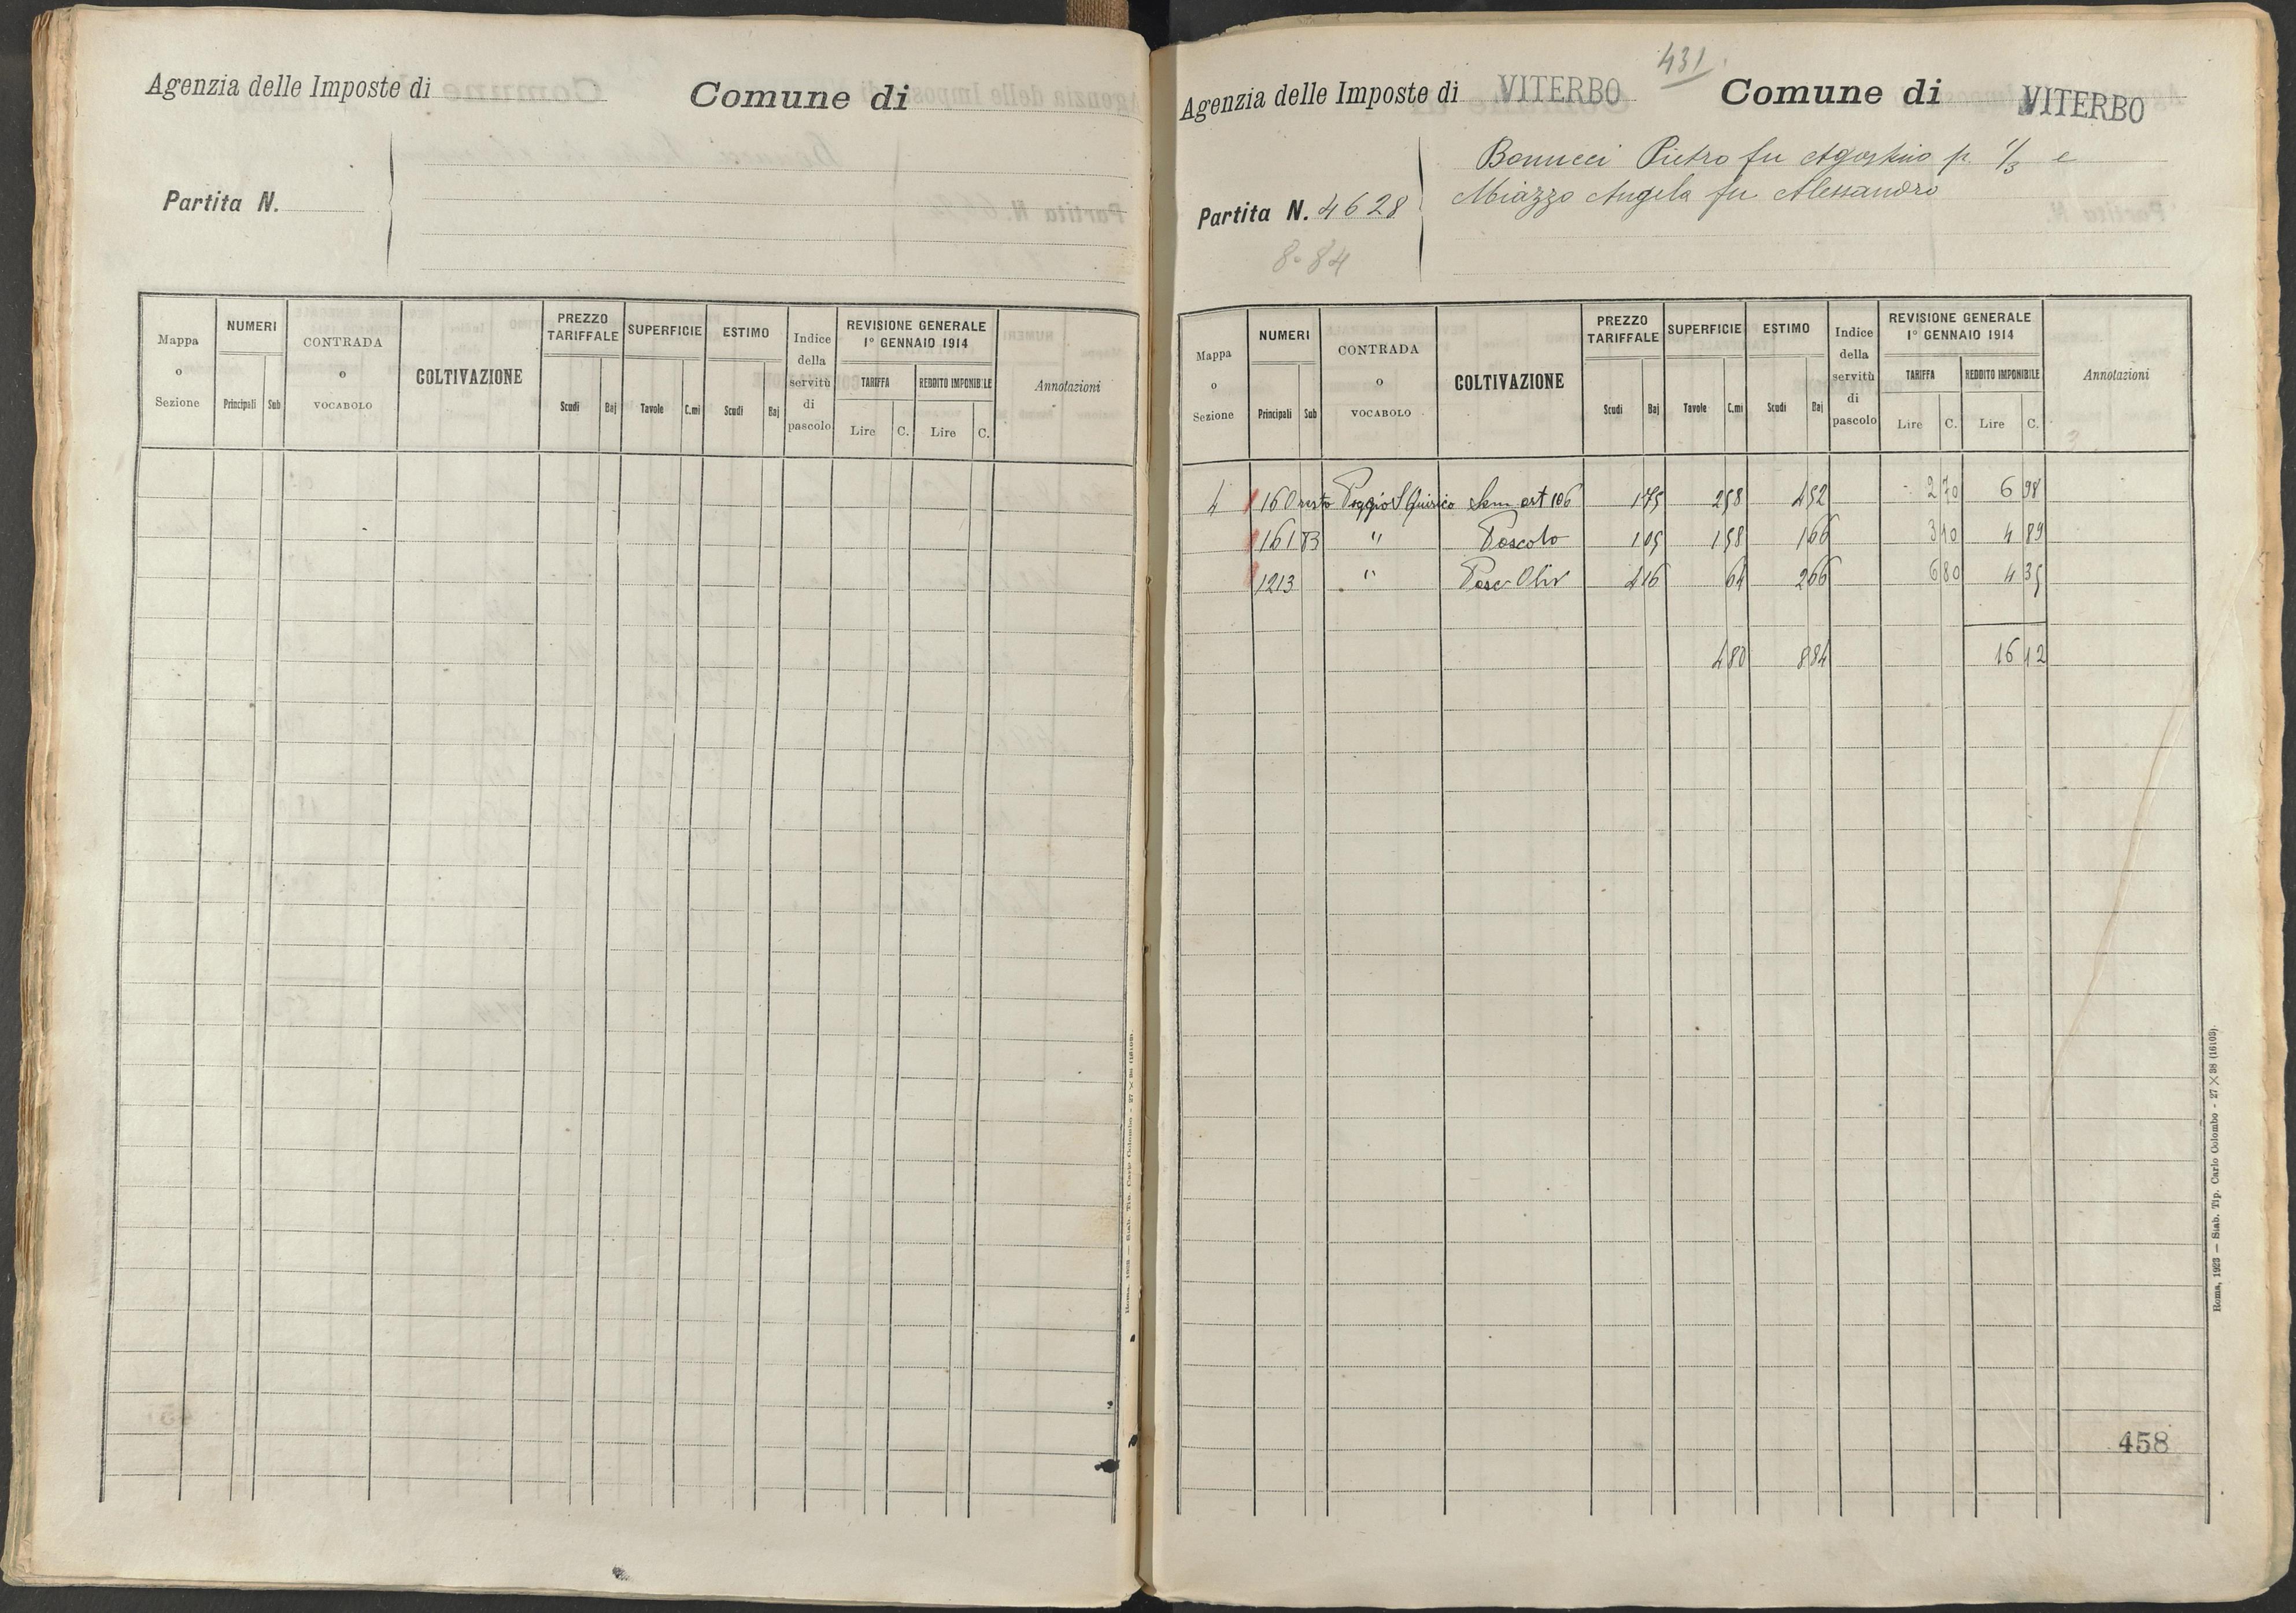 Agenzia delle Imposte di
Comune di
Partita N.
Mappa o Sezione
NUMERI
Principali Sub
CONTRADA o VOCABOLO
COLTIVAZIONE
PREZZO TARIFFALE
Scudi Baj
SUPERFICIE
Tavole C.mi
ESTIMO
Scudi Baj
Indice della servitù di pascolo
REVISIONE GENERALE 1° GENNAIO 1914
TARIFFA
Lire C.
REDDITO IMPONIBILE
Lire C.
Annotazioni
431
Agenzia delle Imposte di VITERBO Comune di VITERBO
Bonucci Pietro fu Agostino p. 1/3 e
Miazzo Angela fu Alessandro
Partita N. 4628
8-84
Mappa o Sezione
NUMERI
Principali Sub
CONTRADA o VOCABOLO
COLTIVAZIONE
PREZZO TARIFFALE
Scudi Baj
SUPERFICIE
Tavole C.mi
ESTIMO
Scudi Baj
Indice della servitù di pascolo
REVISIONE GENERALE 1° GENNAIO 1914
TARIFFA
Lire C.
REDDITO IMPONIBILE
Lire C.
Annotazioni
4 160 resto Poggio S Quirico Sem art 106 1 75 2 58 4 52 2 70 6 98
161 " Pascolo 1 05 1 58 1 66 3 10 4 89
1213 " Pasc Oliv 4 16 64 2 66 6 80 4 35
4 80 8 84 16 12
458
Roma, 1923 — Stab. Tip. Carlo Colombo - 27 × 38 (16103).